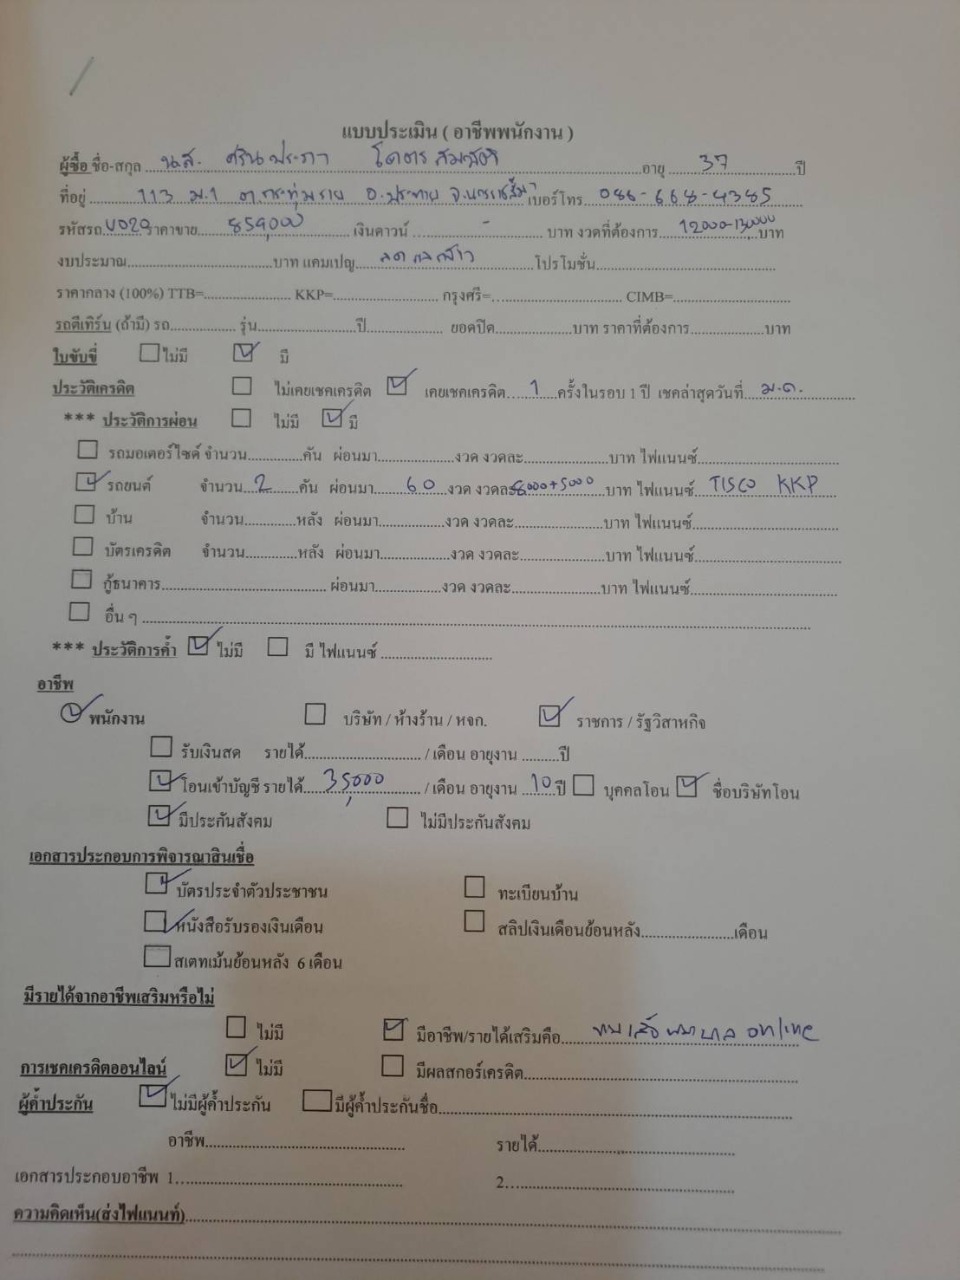 แบบประเมิน ( อาชีพพนักงาน )
ผู้ซื้อ ชื่อ-สกุล น.ส. ศรินประภา โคตรสมบัติ อายุ 37 ปี
ที่อยู่ 113 ม.1 ต.กระทุ่มราย อ.ประทาย จ.นครราชสีมา เบอร์โทร 086-668-4385
รหัสรถ V029 ราคาขาย 859,000 เงินดาวน์ - บาท งวดที่ต้องการ 12000-13000 บาท
งบประมาณ บาท แคมเปญ โปรโมชั่น
ราคากลาง (100%) TTB= KKP= กรุงศรี= CIMB=
รถตีเทิร์น (ถ้ามี) รถ รุ่น ปี ยอดปิด บาท ราคาที่ต้องการ บาท
ใบขับขี่ ไม่มี มี
ประวัติเครดิต ไม่เคยเชคเครดิต เคยเชคเครดิต 1 ครั้งในรอบ 1 ปี เชคล่าสุดวันที่ ม.ค.
*** ประวัติการผ่อน ไม่มี มี
รถมอเตอร์ไซค์ จำนวน คัน ผ่อนมา งวด งวดละ บาท ไฟแนนซ์
รถยนต์ จำนวน 2 คัน ผ่อนมา 60 งวด งวดละ 8000+5000 บาท ไฟแนนซ์ TISCO KKP
บ้าน จำนวน หลัง ผ่อนมา งวด งวดละ บาท ไฟแนนซ์
บัตรเครดิต จำนวน หลัง ผ่อนมา งวด งวดละ บาท ไฟแนนซ์
กู้ธนาคาร ผ่อนมา งวด งวดละ บาท ไฟแนนซ์
อื่น ๆ
*** ประวัติการค้ำ ไม่มี มี ไฟแนนซ์
อาชีพ
พนักงาน บริษัท / ห้างร้าน / หจก. ราชการ / รัฐวิสาหกิจ
รับเงินสด รายได้ / เดือน อายุงาน ปี
โอนเข้าบัญชี รายได้ 35,000 / เดือน อายุงาน 10 ปี บุคคลโอน ชื่อบริษัทโอน
มีประกันสังคม ไม่มีประกันสังคม
เอกสารประกอบการพิจารณาสินเชื่อ
บัตรประจำตัวประชาชน ทะเบียนบ้าน
หนังสือรับรองเงินเดือน สลิปเงินเดือนย้อนหลัง เดือน
สเตทเม้นย้อนหลัง 6 เดือน
มีรายได้จากอาชีพเสริมหรือไม่
ไม่มี มีอาชีพ/รายได้เสริมคือ online
การเชคเครดิตออนไลน์ ไม่มี มีผลสกอร์เครดิต
ผู้ค้ำประกัน ไม่มีผู้ค้ำประกัน มีผู้ค้ำประกันชื่อ
อาชีพ รายได้
เอกสารประกอบอาชีพ 1 2
ความคิดเห็น(ส่งไฟแนนท์)